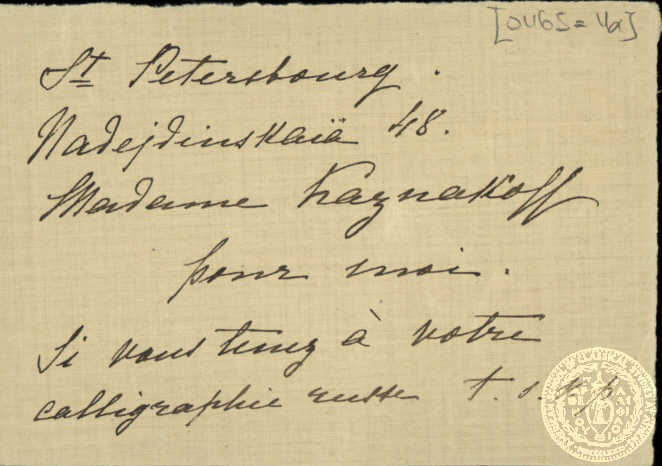 St Petersbourg.
Nadejdinskaïa 48.
Madame Kaznakoff
pour moi.
Si vous tenez à votre
calligraphie russe t. s. v. p.